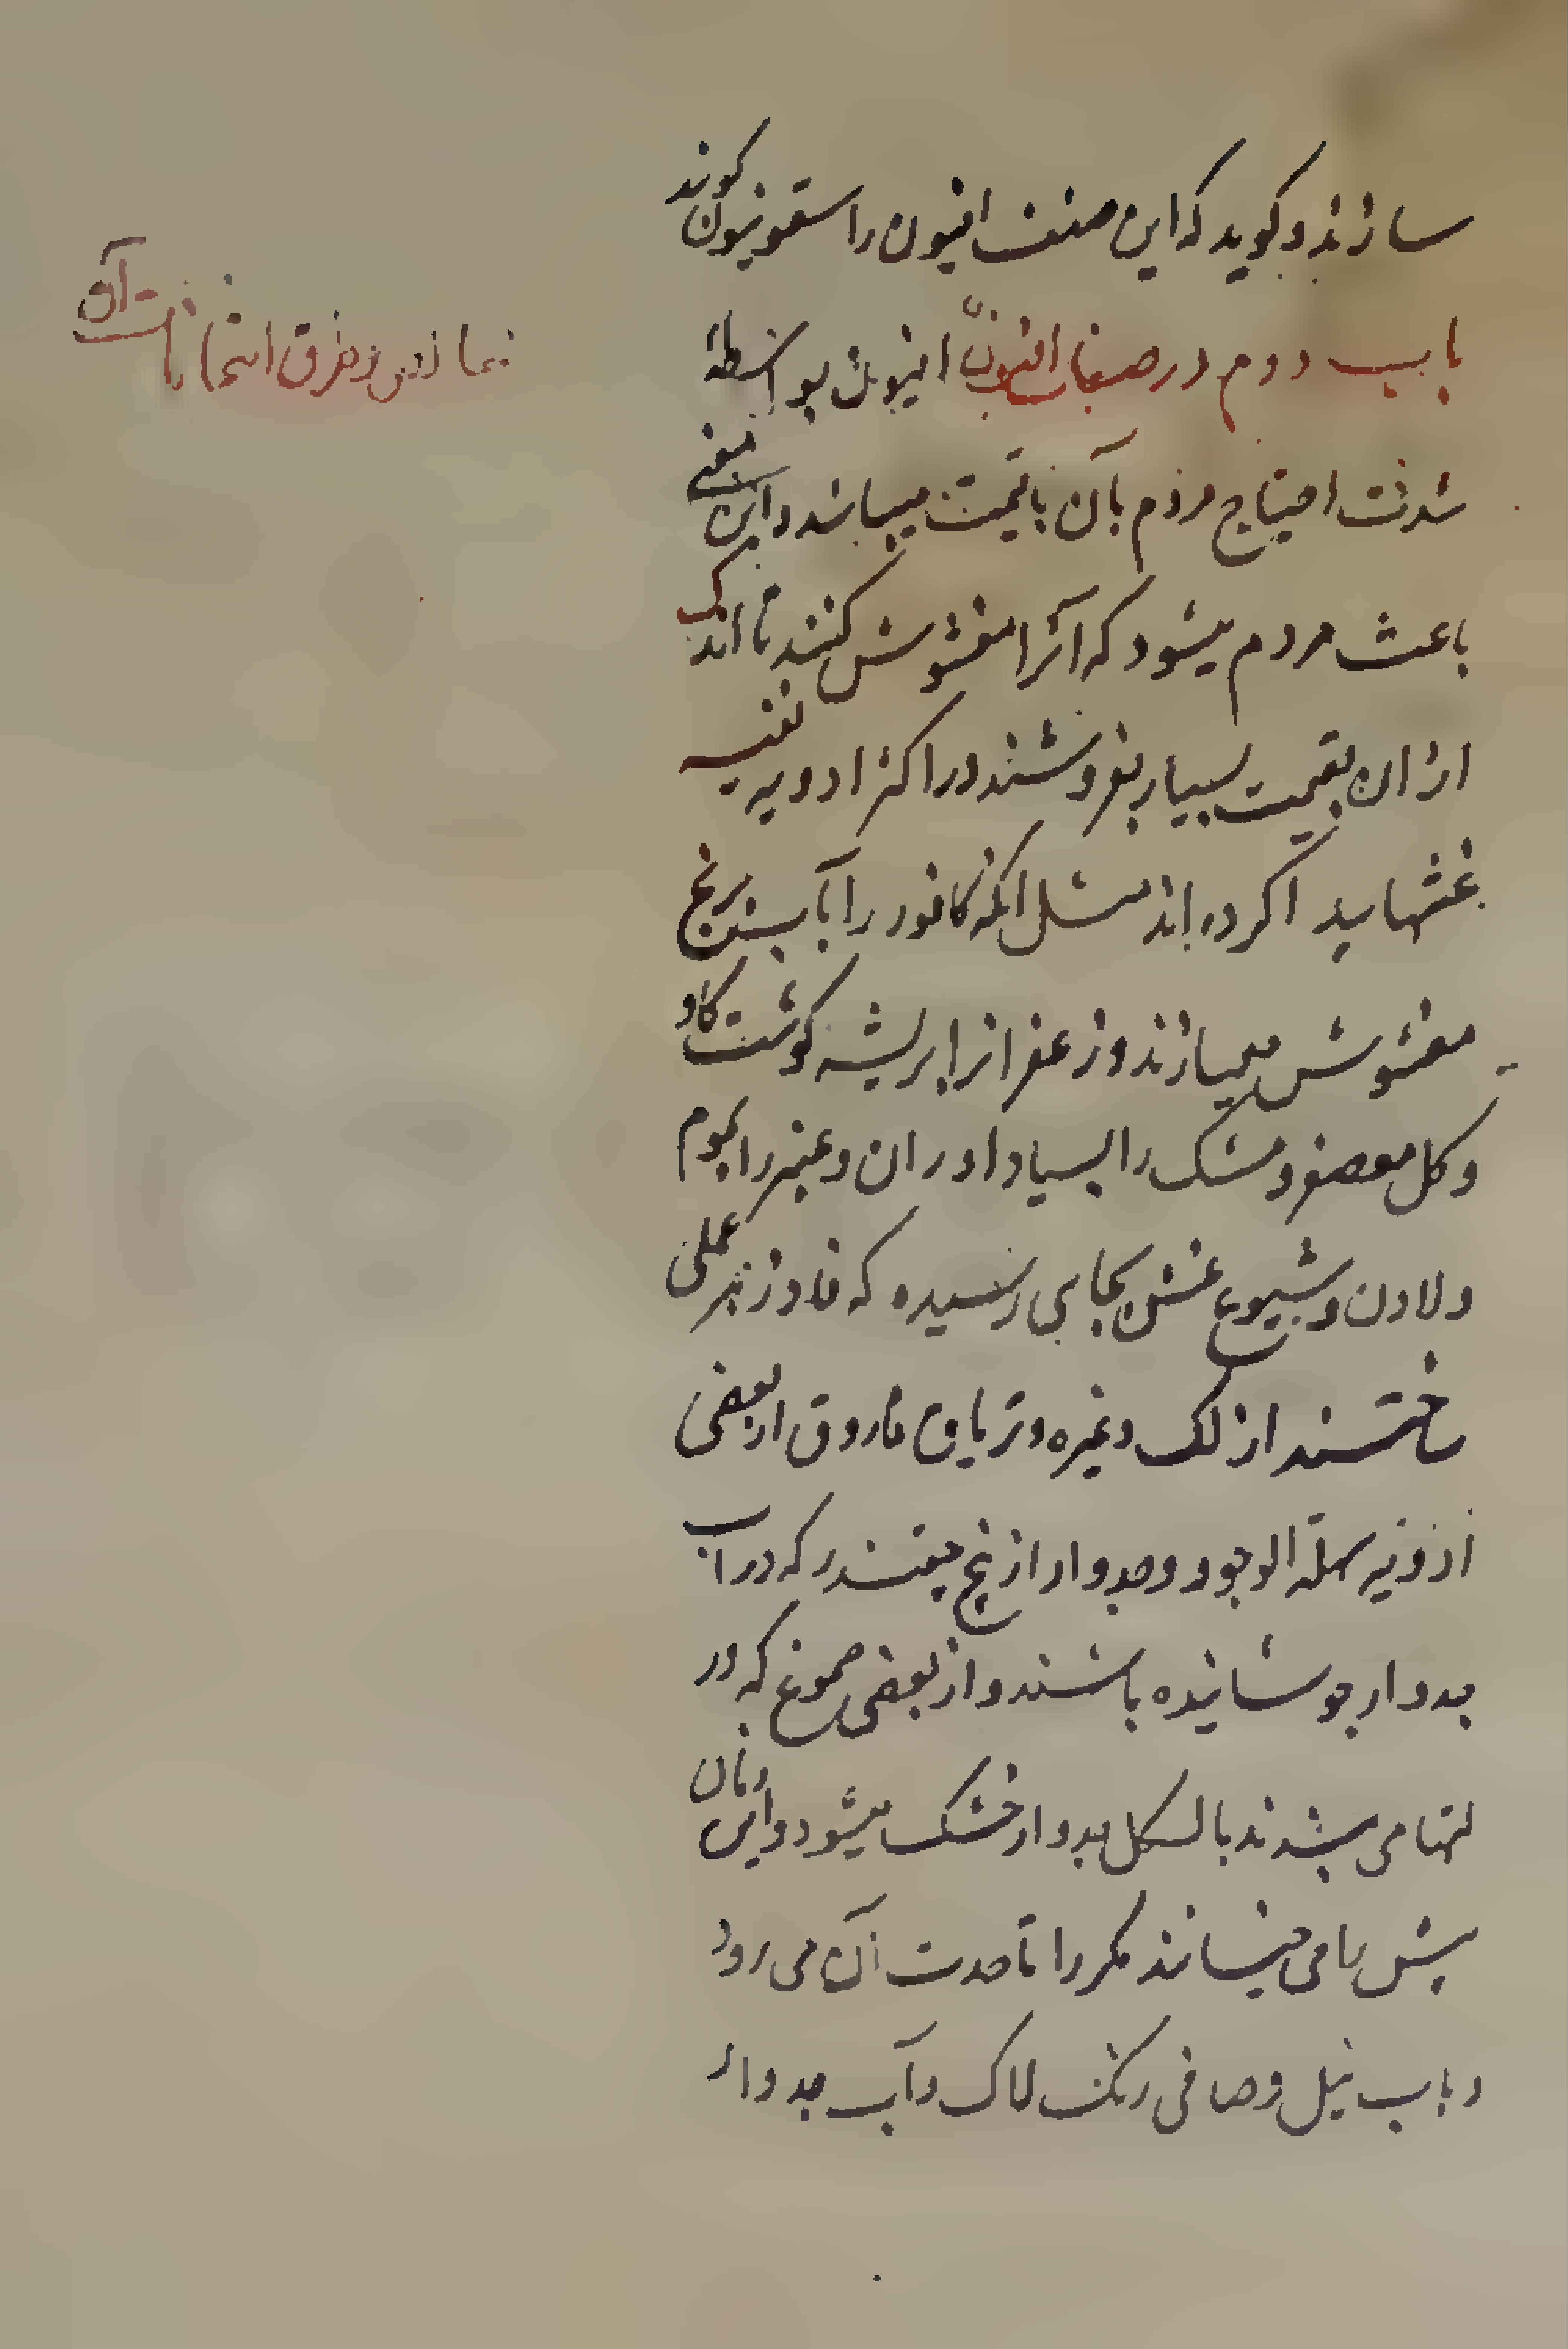 سازند و کوید که این صنف افیون را سقمونیون کوند
باب دوم در صفات افیون افیون بواسطهٔ
شدت احتیاج مردم بآن با قیمت میباشد و این معنی
باعث مردم میشود که آنرا مغشوش کنند تا اندک
از ان بقیمت بسیار بفروشند در اکثر ادویه نفیسه
غشها پیدا کرده اند مثل انکه کافور را بآب برنج
مغشوش میسازند و زعفرانرا بریشه کوشت کاو
و کل معصفر و مشک را بسیاداوران و عنبر را بموم
و لادن و شیوع غش بجایی رسیده که فادزهر عملی
ساختند از لک و غیره و تریاق فاروق از بعضی
ادویه سهلة الوجود و جدوار از بیخ چقندر که در آب
جدوار جوشانیده باشند و از بعضی صموغ که در
لتها می بندند بالشکل جدوار خشک میشود و این زمان
بیش را می خیسانند مکررا تا حدت آن می رود
و باب نیل و صافی رنک لاک و آب جدوار